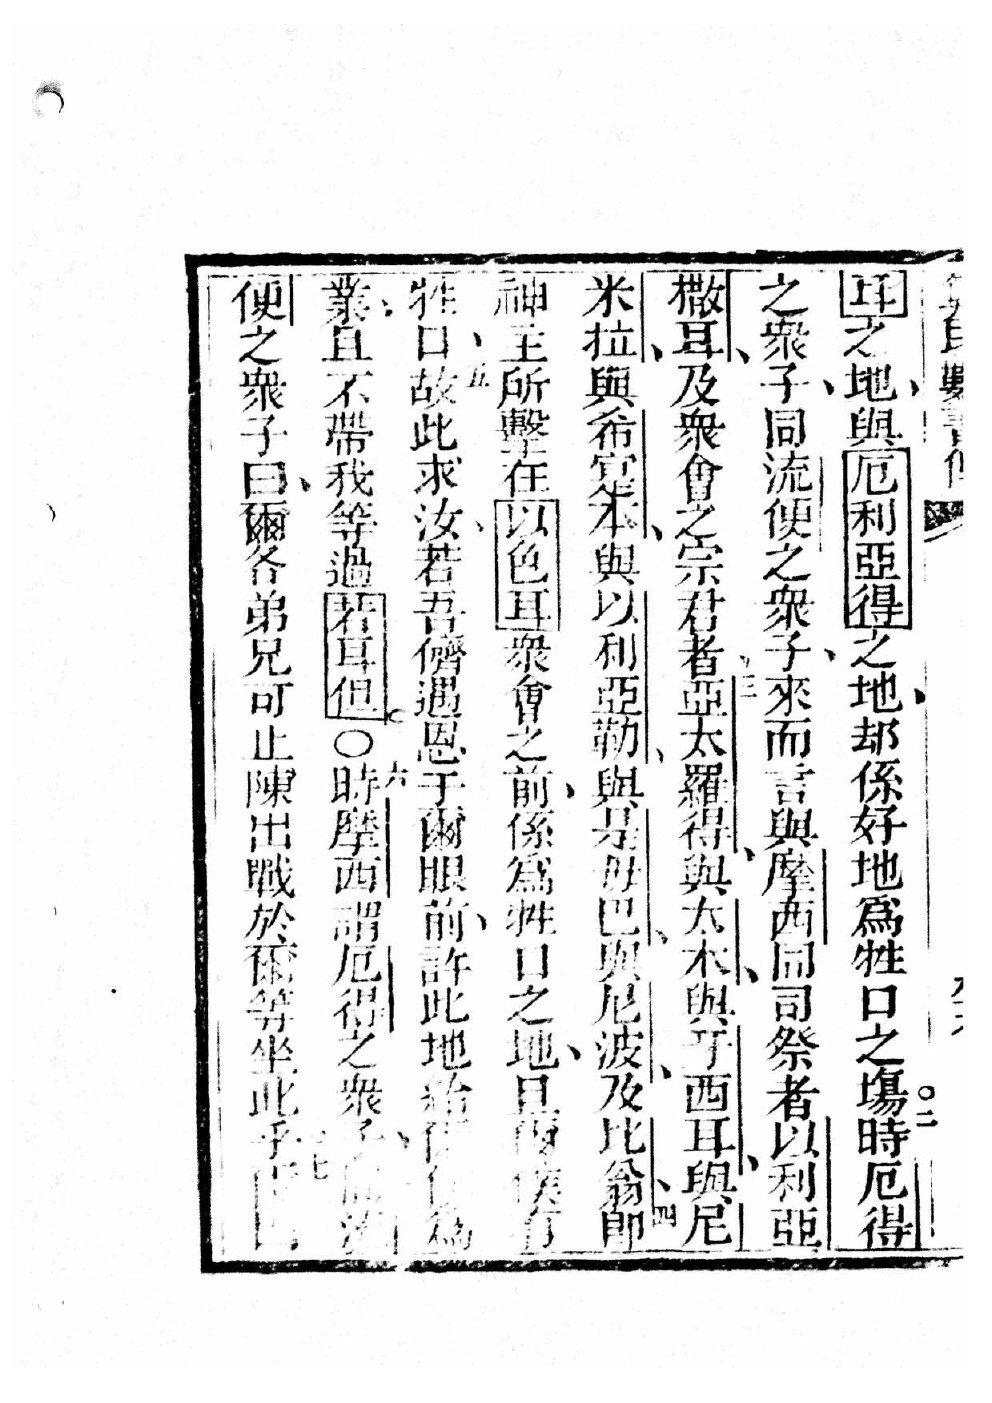 耳之地與厄利亞得之地却係好地爲牲口之塲時厄得
二
之衆子同流便之衆子來而言與摩西同司祭者以利亞
撒耳及衆會之宗君者亞太羅得與太本與牙西耳與尼
三
米拉與希寔本與以利亞勒與是毋巴與尼波及比翁卽
四
神主所擊在以色耳衆會之前係爲牲口之地且
牲口故此求汝若吾儕遇恩于爾眼前許此地給
五
業且不帶我等過若耳但〇時摩西謂厄得之衆子
六
便之衆子曰爾各弟兄可止陳出戰於爾等坐此乎
七
數書傳